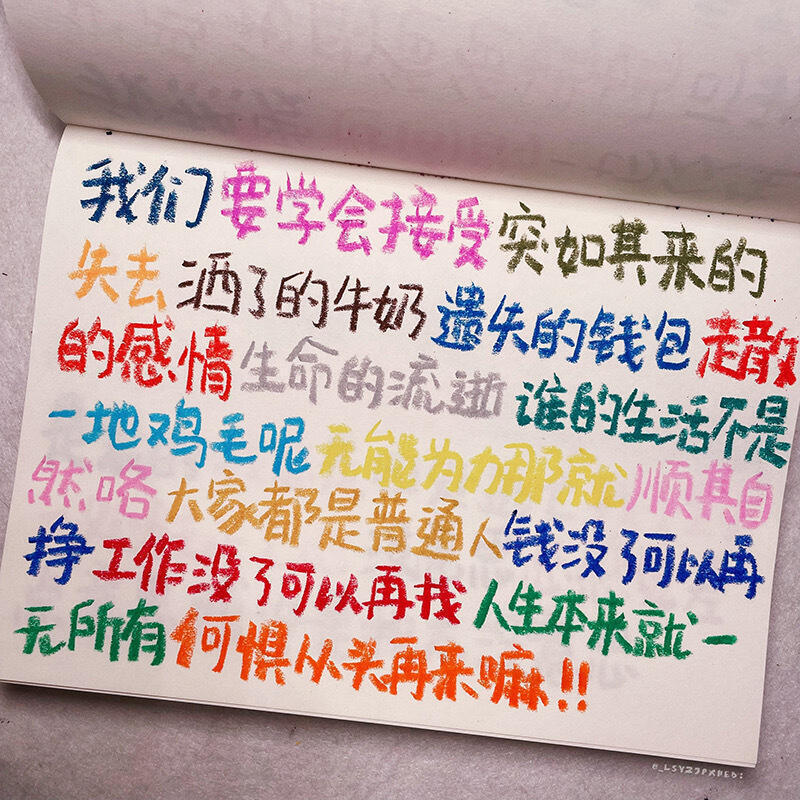 我们要学会接受突如其来的
失去洒了的牛奶遗失的钱包走散
的感情生命的流逝谁的生活不是
一地鸡毛呢无能为力那就顺其自
然咯大家都是普通人钱没了可以再
挣工作没了可以再找人生本来就一
无所有何惧从头再来嘛!!